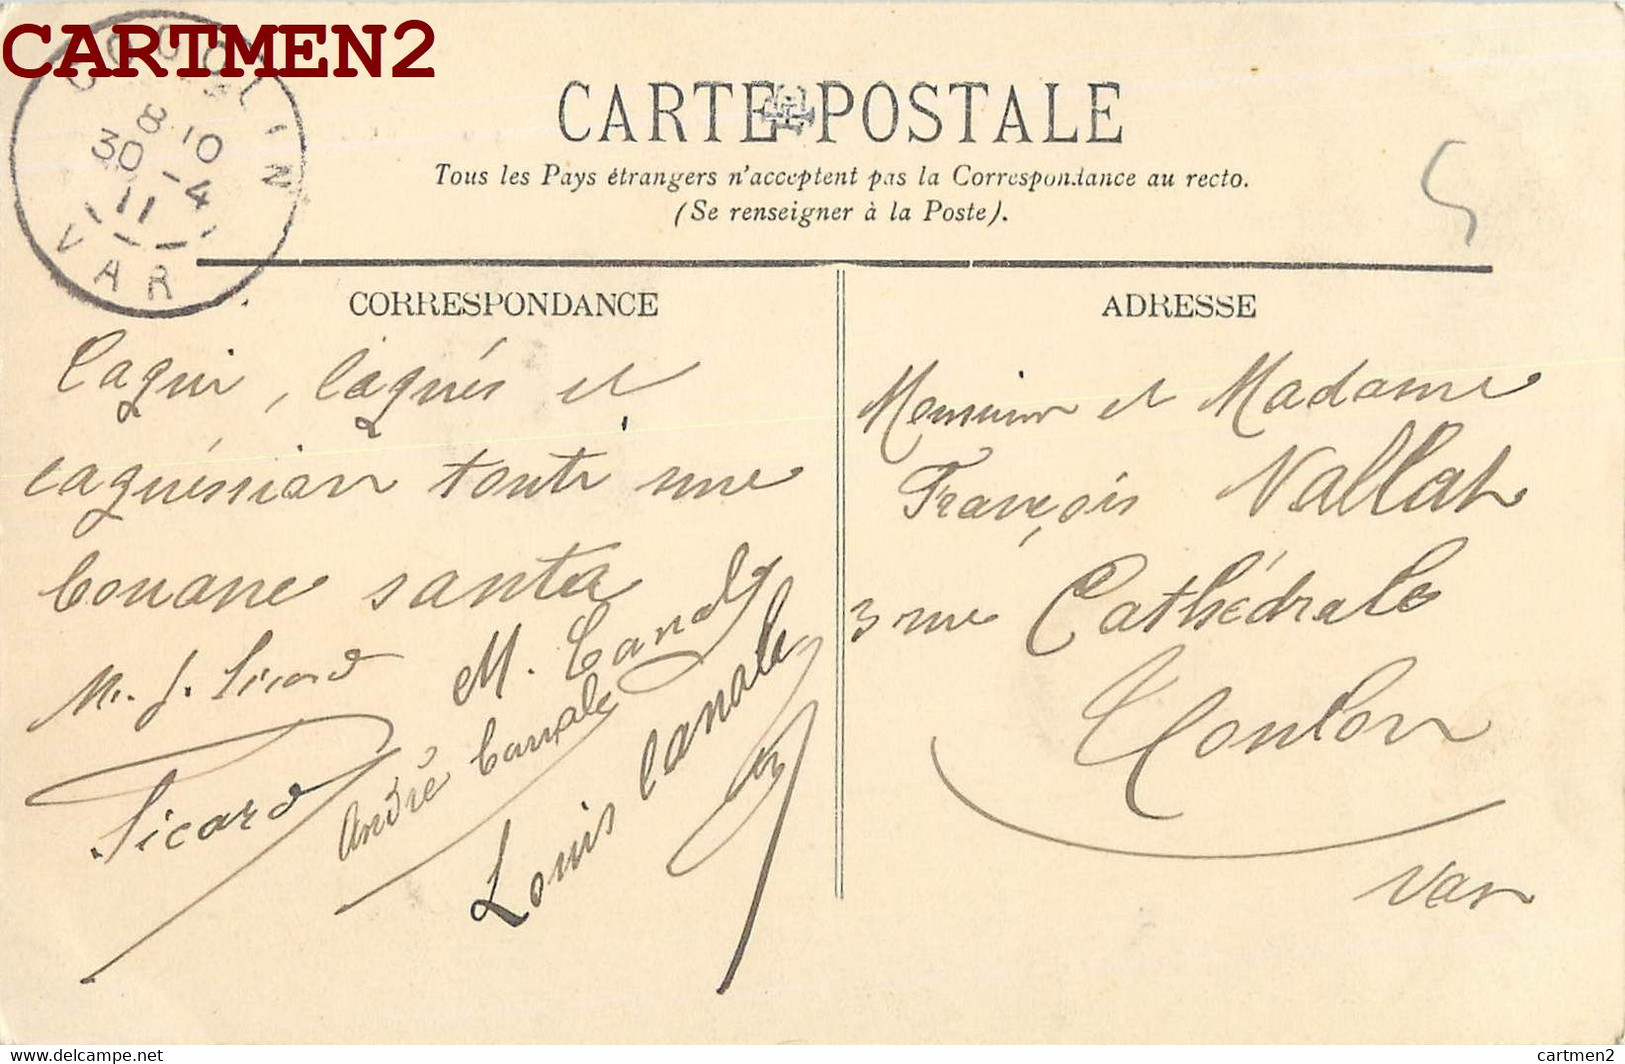 CARTMEN2
COGOLIN
8·10
30-4
11
VAR
CARTE POSTALE
Tous les Pays étrangers n'acceptent pas la Correspondance au recto.
(Se renseigner à la Poste).
5
CORRESPONDANCE
Caqui, caqués et
caquéssian touti une
bouane santa
M. J. Sicard
M.
Sicard
André
Louis Canale
ADRESSE
Monsieur et Madame
François Vallat
3 rue Cathédrale
Toulon
Var
www.delcampe.net
cartmen2